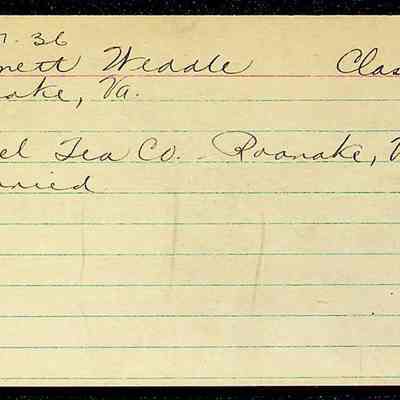 7. 36
nett Weddle Clas
oake, Va.
el Tea Co. Roanoke, V
ried